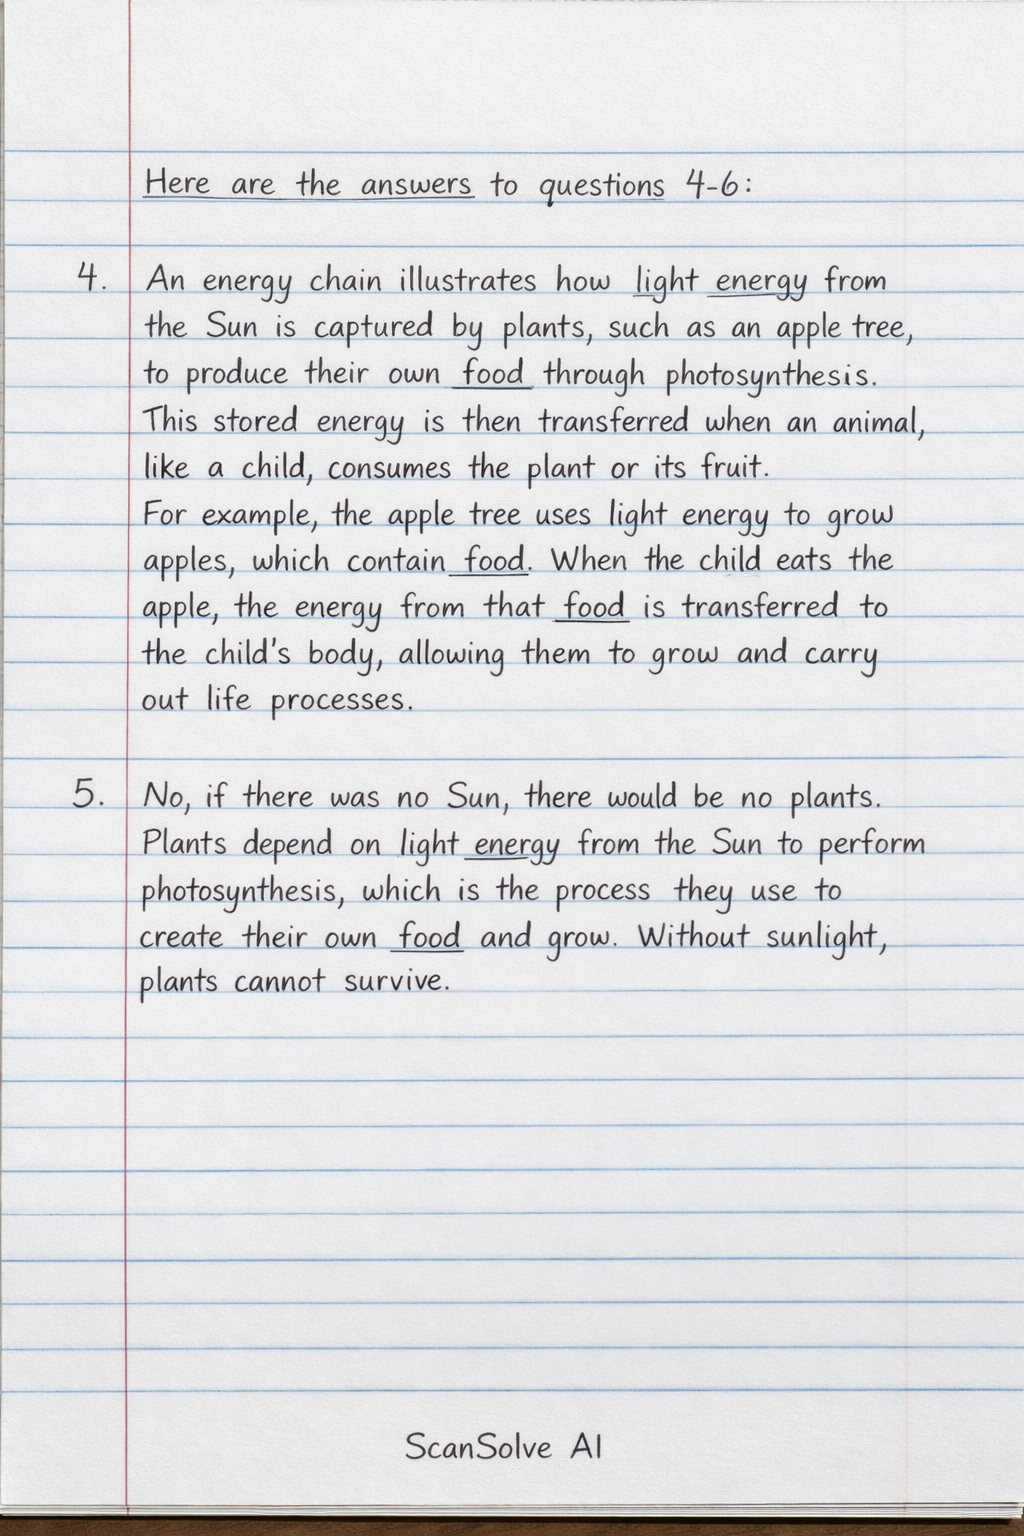 Here are the answers to questions 4-6:
4. An energy chain illustrates how light energy from
the Sun is captured by plants, such as an apple tree,
to produce their own food through photosynthesis.
This stored energy is then transferred when an animal,
like a child, consumes the plant or its fruit.
For example, the apple tree uses light energy to grow
apples, which contain food. When the child eats the
apple, the energy from that food is transferred to
the child's body, allowing them to grow and carry
out life processes.
5. No, if there was no Sun, there would be no plants.
Plants depend on light energy from the Sun to perform
photosynthesis, which is the process they use to
create their own food and grow. Without sunlight,
plants cannot survive.
ScanSolve AI